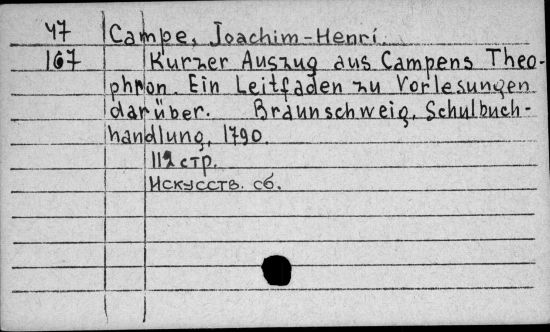 47 Campe, Joachim-Henri.
167 Kurzer Auszug aus Campens Theo-
phron. Ein Leitfaden zu Vorlesungen
darüber. Braunschweig, Schulbuch-
handlung, 1790.
112 стр.
Искусств. сб.